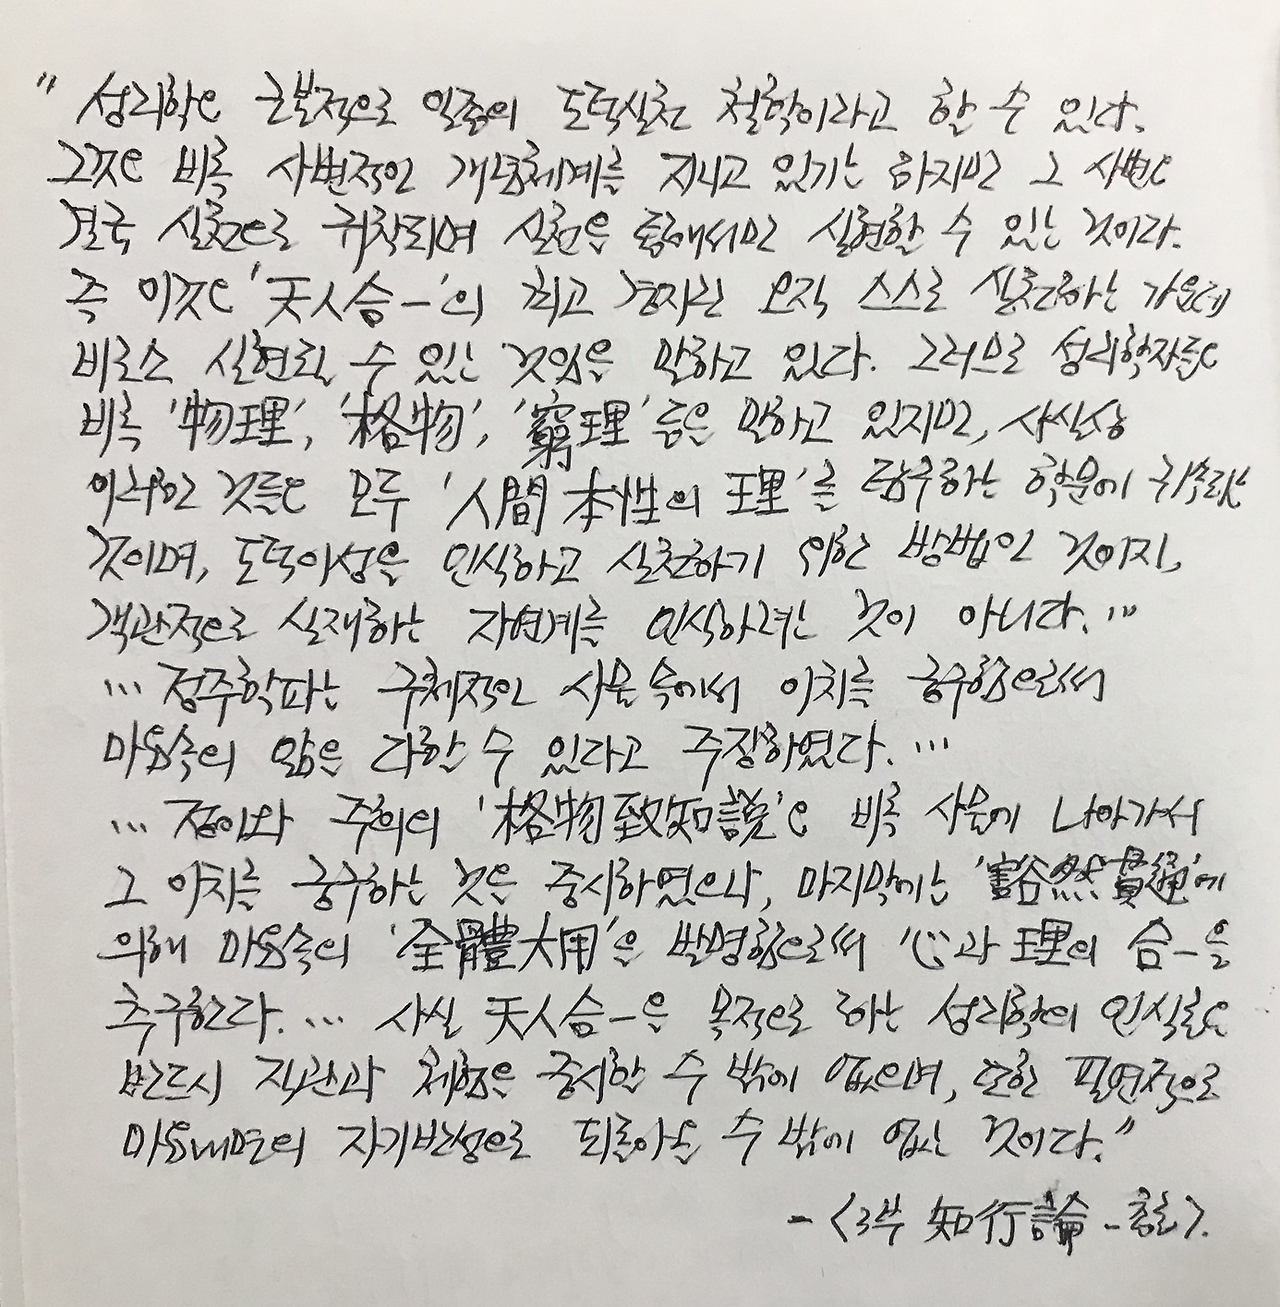 " 성리학은 근본적으로 일종의 도덕실천 철학이라고 할 수 있다.
그것은 비록 사변적인 개념체계를 지니고 있기는 하지만 그 사변은
결국 실천으로 귀착되며 실천을 통해서만 실현할 수 있는 것이다.
즉 이것은 '天人合一'의 최고 경지는 오직 스스로 실천하는 가운데
비로소 실현될 수 있는 것임을 말하고 있다. 그러므로 성리학자들은
비록 '物理', '格物', '窮理' 등을 말하고 있지만, 사실상
이러한 것들은 모두 '人間 本性의 理'를 탐구하는 학문에 귀속되는
것이며, 도덕이성을 인식하고 실천하기 위한 방법인 것이지,
객관적으로 실재하는 자연계를 인식하려는 것이 아니다. ..."
... 정주학파는 구체적인 사물 속에서 이치를 궁구함으로써
마음속의 앎을 다할 수 있다고 주장하였다. ...
... 정이와 주희의 '格物致知說'은 비록 사물에 나아가서
그 이치를 궁구하는 것을 중시하였으나, 마지막에는 '豁然貫通'에
의해 마음속의 '全體大用'을 발명함으로써 '心과 理의 合一을
추구한다. ... 사실 天人合一을 목적으로 하는 성리학의 인식론은
반드시 직관과 체험을 중시할 수 밖에 없으며, 또한 필연적으로
마음내면의 자기반성으로 되돌아올 수 밖에 없는 것이다."
- <3부 知行論 - 총론>.